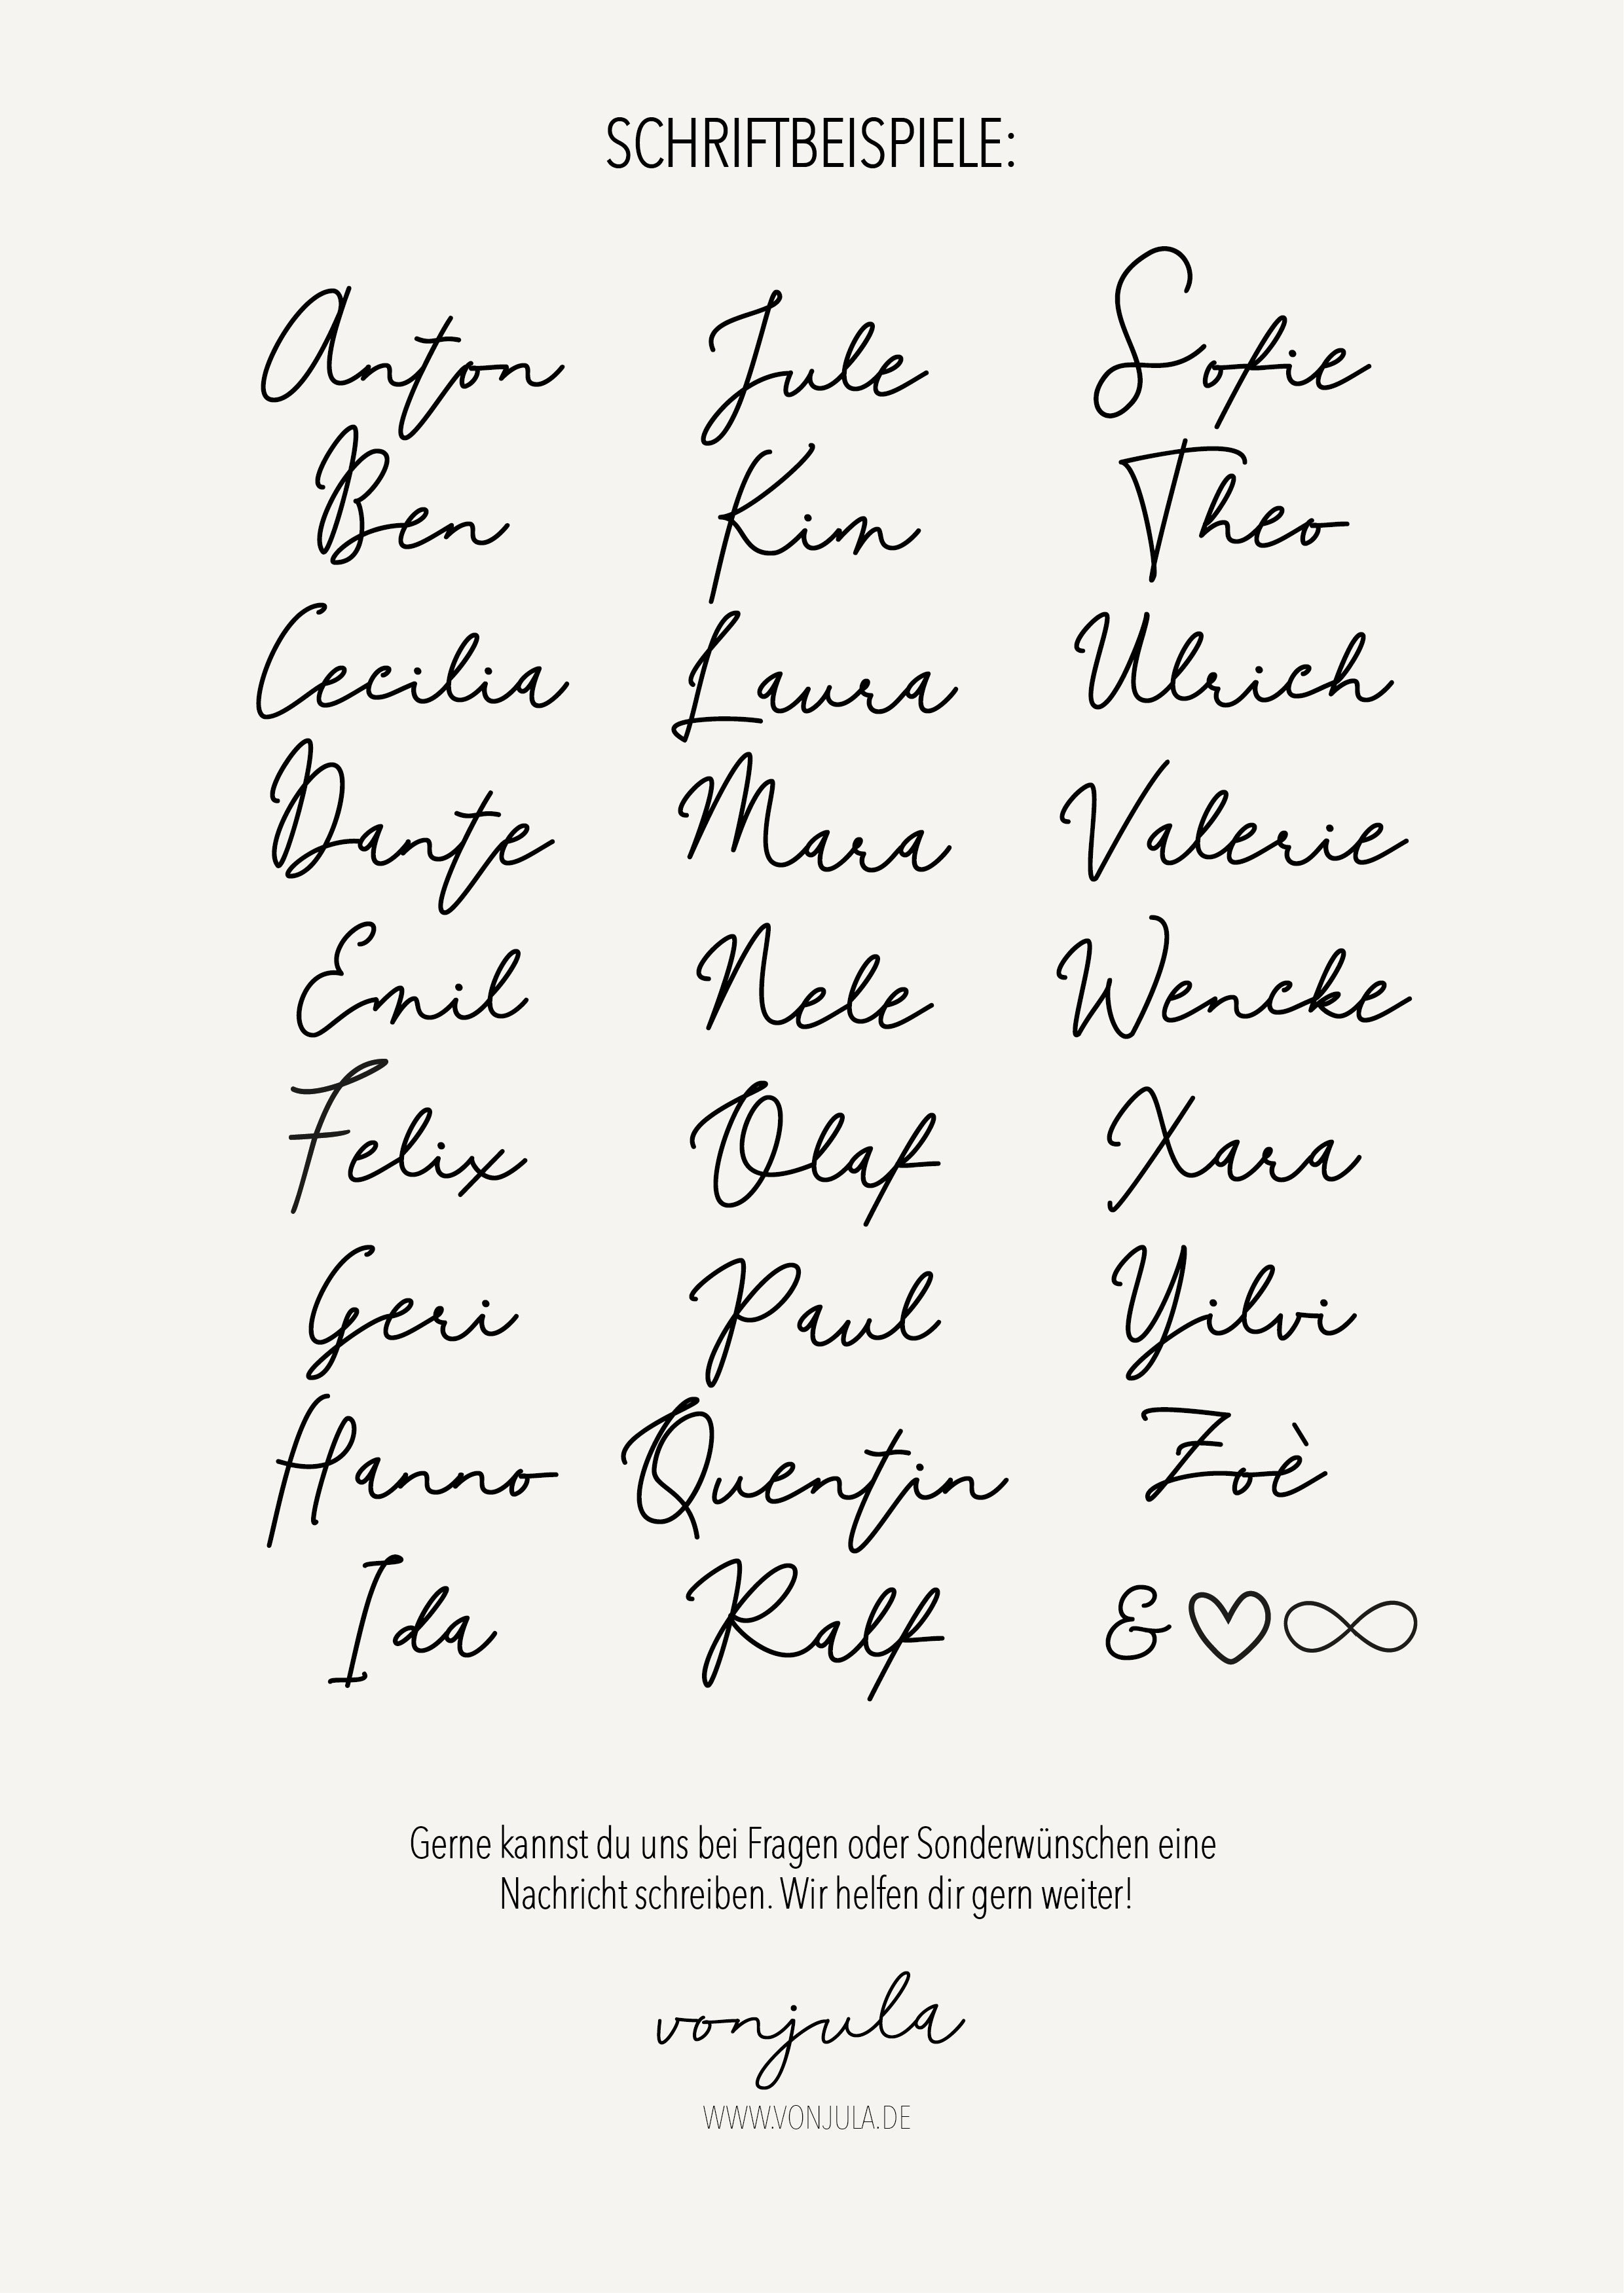 SCHRIFTBEISPIELE:
Anton Jule Sofie
Ben Kim Theo
Cecilia Laura Ulrich
Dante Mara Valerie
Emil Nele Wencke
Felix Olaf Xara
Geri Paul Yilvi
Hanno Quentin Zoè
Ida Ralf & ♡ ∞
Gerne kannst du uns bei Fragen oder Sonderwünschen eine
Nachricht schreiben. Wir helfen dir gern weiter!
vonjula
WWW.VONJULA.DE